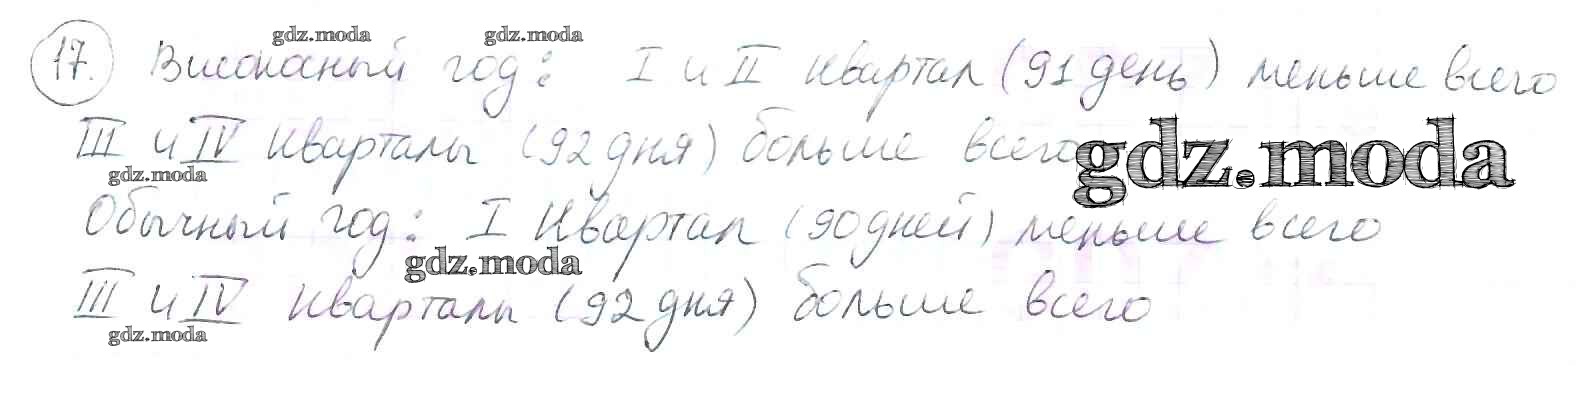 gdz.moda gdz.moda
17. Високосный год: I и II квартал (91 день) меньше всего
III и IV кварталы (92 дня) больше всего
gdz.moda
gdz.moda
Обычный год: I квартал (90 дней) меньше всего
gdz.moda
III и IV кварталы (92 дня) больше всего
gdz.moda